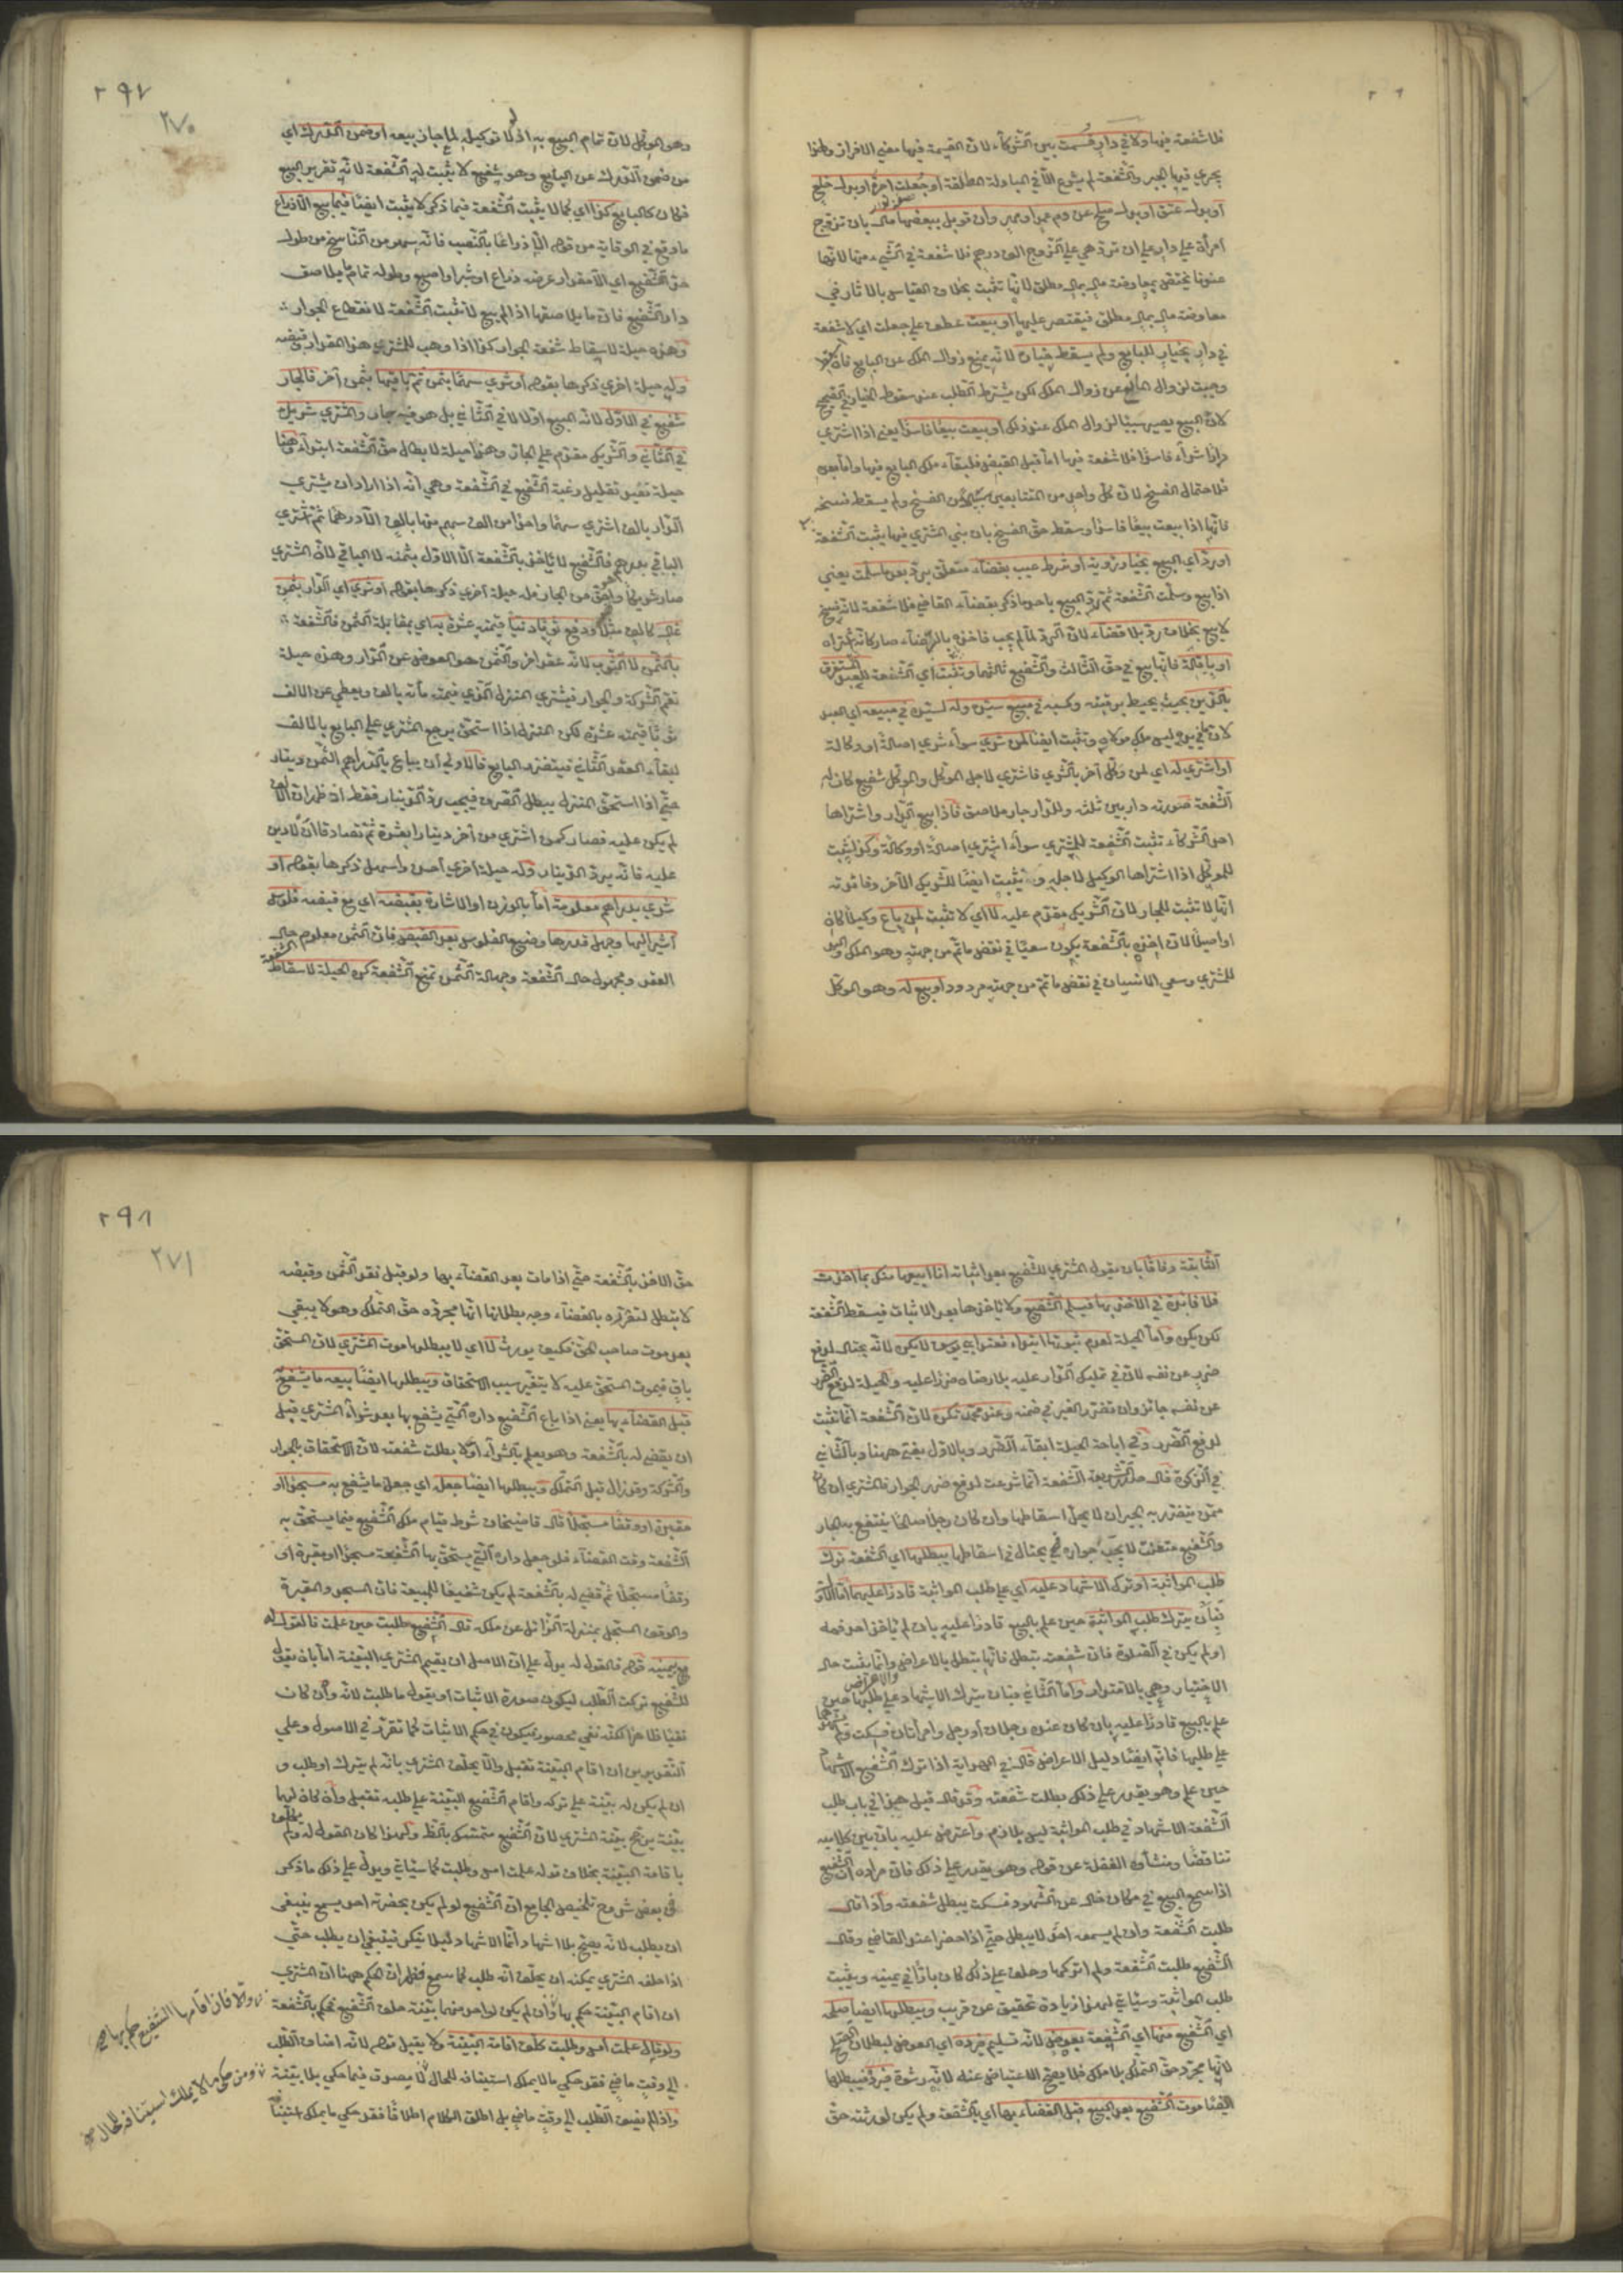 فلا شفعة فيها ولا في دار قسمت بين الشركاء لان القسمة فيها معنى الافراز ولهذا
يجري فيها الجبر والشفعة لم يشرع الا في المبادلة المطلقة او جعلت اجرة او بدل خلع
او بدل عتق او بدل صلح عن دم عمد او مهر وان قوبل ببعضها مال بان تزوج
امرأة على دار على ان ترد هي على الزوج الف درهم فلا شفعة في الشيء منها لانها
عندنا تختص بمعاوضة مال بمال مطلق لانها تثبت بخلاف القياس بالاثار في
معاوضة مال بمال مطلق فيقتصر عليها او بيعت عطف على جعلت اي لا شفعة
في دار بخيار للبايع ولم يسقط خياره لانه يمنع زوال الملك عن البايع فان
وجبت لزوال المانع عن زوال الملك لكن يشترط الطلب عند سقوط الخيار في الصحيح
لان البيع يصير سببا لزوال الملك عند ذلك او بيعت بيعا فاسدا يعني اذا اشترى
دارا شراء فاسدا فلا شفعة فيها اما قبل القبض فلبقاء ملك البايع فيها واما بعده
فلاحتمال الفسخ لان كل واحد من المتبايعين بسبيل من الفسخ ولم يسقط فسخه
فانها اذا بيعت بيعا فاسدا وسقط حق الفسخ بان بنى المشتري فيها يثبت الشفعة
او رد اي المبيع بخيار رؤية او شرط عيب بقضاء متعلق برد بعد ما سلمت يعني
اذا بيع وسلمت الشفعة ثم رد المبيع باحد ما ذكر بقضاء القاضي فلا شفعة لانه فسخ
لا بيع بخلاف رد بلا قضاء لان الرد لما لم يجب فاخذه بالرضاء صار كانه اشتراه
او باقالة فانها بيع في حق الثالث والشفيع ثالثهما وتثبت اي الشفعة للعبد المستغرق
بالدين بحيث يحيط برقبته وكسبه في مبيع سيده وله لسيده في مبيعه اي العبد
لان ما في يده ليس ملك مولاه وتثبت ايضا لمن شرى سواء شرى اصالة او وكالة
او اشترى له اي لمن وكل آخر بالشرى فاشترى لاجل الموكل والموكل شفيع كان له
الشفعة صورته دار بين ثلثة وللدار جار ملاصق فاذا بيع الدار واشتراها
احد الشركاء تثبت الشفعة للمشتري سواء اشترى اصالة او وكالة وكذا يثبت
للموكل اذا اشتراها الوكيل لاجله و يثبت ايضا للشريك الآخر وفائدته
انها لا تثبت للجار لان الشريك مقدم عليه لا اي لا تثبت لمن باع وكيلا كان
او اصيلا لان اخذه بالشفعة يكون سعيا في نقض ما تم من جهته وهو الملك واليد
للمشتري وسعي الانسان في نقض ما تم من جهته مردود او بيع له وهو الموكل
٢٩٧
٢٧٠
وهو الموكل لان تمام البيع به اذ لولا توكيله لما جاز بيعه او ضمن الدرك اي
من ضمن الدرك عن البايع وهو شفيع لا يثبت له الشفعة لانه تقرير البيع
فكان كالبايع كذا اي كما لا يثبت الشفعة فيما ذكر لا يثبت ايضا فيما بيع الا ذراع
ما وقع في الوقاية من قوله الا ذراعا بالنصب فانه سهو من الناسخ من طول
حد الشفيع اي الا مقدار عرض ذراع او شبر او اصبع وطوله تمام ما يلاصق
دار الشفيع فان ما يلاصقها اذا لم يبع لا تثبت الشفعة لانقطاع الجوار
وهذه حيلة لاسقاط شفعة الجوار كذا اذا وهب للمشتري هذا المقدار وقبضه
وله حيلة اخرى ذكرها بقوله او شرى سهما بثمن ثم باقيها بثمن آخر فالجار
شفيع في الاول لانه المبيع اولا لا في الثاني بل هو فيه جار والمشتري شريك
في الثاني والشريك مقدم على الجار وهذا حيلة لابطال حق الشفعة ابتداء وهنا
حيلة تفيد تقليل رغبة الشفيع في الشفعة وهي انه اذا اراد ان يشتري
الدار بالف اشترى سهما واحدا من الف سهم منها بالف الا درهما ثم اشترى
الباقي بدرهم فالشفيع لا يأخذ بالشفعة الا الاول بثمنه لا الباقي لان المشتري
صار شريكا وهو احق من الجار وله حيلة اخرى ذكرها بقوله او شرى اي الدار بثمن
غال كالف مثلا ودفع ثوبا دنيا قيمته عشرة به اي بمقابلة الثمن فالشفعة
بالثمن لا الثوب لانه عقد آخر والثمن هو العوض عن الدار وهذه حيلة
تعم الشركة والجوار فيشتري المنزل الذي قيمته مائة بالف ويعطي عن الالف
ثوبا قيمته عشرة لكن المنزل اذا استحق يرجع المشتري على البايع بالالف
لبقاء العقد الثاني فيتضرر البايع فالاولى ان يباع بالدراهم الثمن دينار
حتى اذا استحق المنزل يبطل الصرف فيجب رد الدينار فقط اذ ظهر ان الالف
لم يكن عليه فصار كمن اشترى من آخر دينارا بعشرة ثم تصادقا ان لا دين
عليه فانه يرد الدينار وله حيلة اخرى احسن واسهل ذكرها بقوله او
شرى بدراهم معلومة اما بالوزن او الاشارة بقبضته اي مع قبضة فلوس
اشير اليها وجهل قدرها وضيع الفلوس بعد القبض فان الثمن معلوم حال
العقد ومجهول حال الشفعة وجهالة الثمن تمنع الشفعة كره الحيلة لاسقاط الشفعة
الثابتة وفاقا بان يقول المشتري للشفيع بعد اثباته انا ابيعها منك بما اخذت
فلا فائدة في الاخذ بها فيسلم الشفيع ولا يأخذها بعد الاثبات فيسقط الشفعة
لكن يكره واما الحيلة لعدم ثبوتها ابتداء فعند ابي يوسف لا يكره لانه يحتال لدفع
ضرر عن نفسه لان في تملك الدار عليه بلا رضاه ضررا عليه والحيلة لدفع الضرر
عن نفسه جائز وان تضرر الغير في ضمنه وعند محمد تكره لان الشفعة انما تثبت
لدفع الضرر وفي اباحة الحيلة ابقاء الضرر وبالاول يفتى ههنا وبالثاني
في الزكوة قال صدر الشريعة الشفعة انما شرعت لدفع ضرر الجوار فالمشتري ان كان
ممن يتضرر به الجيران لا يحل اسقاطها وان كان رجلا صالحا ينتفع به الجار
والشفيع متعنت لا يحب جواره فح يحتال في اسقاطها يبطلها اي الشفعة ترك
طلب المواثبة او ترك الاشهاد عليه اي على طلب المواثبة قادرا عليهما اما الاول
فبان يترك طلب المواثبة حين علم بالبيع قادرا عليه بان لم يأخذ احد فمه
او لم يكن في الصلوة فان شفعته تبطل فانها يبطل بالاعراض وانما يثبت حال
الاختيار وهي بالاقتدار واما الثاني فبان يترك الاشهاد على طلبها حين
علم بالبيع قادرا عليه بان كان عنده رجلان او رجل وامرأتان فسكت ولم يشهد
على طلبها فانه ايضا دليل الاعراض قال في الهداية اذا ترك الشفيع الاشهاد
حين علم وهو يقدر على ذلك بطلت شفعته وقد قال قبل هذا في باب طلب
الشفعة الاشهاد في طلب المواثبة ليس بلازم واعترض عليه بان بين كلاميه
تناقضا ومنشأه الغفلة عن قوله وهو يقدر على ذلك فان مراده ان الشفيع
اذا سمع البيع في مكان خال عن الشهود فسكت يبطل شفعته واذا قال
طلبت الشفعة وان لم يسمعه احد لا يبطل حتى اذا حضرا عند القاضي وقال
الشفيع طلبت الشفعة ولم اتركها وحلف على ذلك كان بارا في يمينه ويثبت
طلب المواثبة وسيأتي لهذا زيادة تحقيق عن قريب ويبطلها ايضا صلحه
اي الشفيع منها اي الشفعة بعوض لانه تسليم فرده اي العوض لبطلان الصلح
لانها مجرد حق التملك بلا ملك فلا يصح الاعتياض عنه لانه رشوة فيرد ويبطلها
ايضا موت الشفيع بعد البيع قبل القضاء بها اي بالشفعة ولم يكن لورثته حق
٢٩٨
٢٧١
حق الاخذ بالشفعة حتى اذا مات بعد القضاء بها ولو قبل نقد الثمن وقبضه
لا يبطل لتقرره بالقضاء وجه بطلانها انها مجرد حق التملك وهو لا يبقى
بعد موت صاحب الحق فكيف يورث لا اي لا يبطلها موت المشتري لان المستحق
باق فبموت المستحق عليه لا يتغير سبب الاستحقاق ويبطلها ايضا بيعه ما يشفع به
قبل القضاء بها يعني اذا باع الشفيع داره التي يشفع بها بعد شراء المشتري قبل
ان يقضى له بالشفعة وهو يعلم بالشراء اولا بطلت شفعته لان الاستحقاق بالجوار
والشركة وقد زال قبل التملك ويبطلها ايضا جعله اي جعل ما يشفع به مسجدا او
مقبرة او وقفا مسجلا قال قاضيخان شرط قيام ملك الشفيع فيما يستحق به
الشفعة وقت القضاء فلو جعل داره التي يستحق بها الشفعة مسجدا او مقبرة او
وقفا مسجلا ثم قضي له بالشفعة لم يكن شفيعا للمبيعة فان المسجد والمقبرة
والوقف المسجل بمنزلة الزائل عن ملكه قال الشفيع طلبت حين علمت فالقول له
مع يمينه قوله فالقول له يدل على ان الاصل ان يقيم المشتري البينة اما بان يقول
للشفيع تركت الطلب ليكون صورة الاثبات او بقوله ما طلبت لانه وان كان
نفيا ظاهرا لكنه نفي محصور فيكون في حكم الاثبات كما تقرر في الاصول وعلى
التقديرين ان اقام البينة تقبل والا يحلف المشتري بانه لم يترك او طلب و
ان لم يكن له بينة على تركه واقام الشفيع البينة على طلبه تقبل وان كان لهما
بينة يرجح بينة المشتري لان الشفيع متمسك بالظ ولهذا كان القول له ولم يطلب
باقامة البينة بخلاف قوله علمت امس وطلبت كما سيأتي ويدل على ذلك ما ذكر
في بعض شروح تلخيص الجامع ان الشفيع لو لم يكن بحضرته احد يسمع ينبغي
ان يطلب لانه يصح بلا اشهاد وانما الاشهاد لئلا ينكر فينبغي ان يطلب حتى
اذا حلفه المشتري يمكنه ان يحلف انه طلب كما سمع فظهر ان الحكم ههنا ان المشتري
ان اقام البينة حكم بها وان لم يكن لواحد منهما بينة حلف الشفيع فحكم بالشفعة
ولو قال علمت امس وطلبت كلف اقامة البينة ولا يقبل قوله لانه اضاف الطلب
الى وقت ماض فقد حكى ما لا يملك استينافه للحال لا يصدق فيما حكى بلا بينة
واذا لم يضف الطلب الى وقت ماض بل اطلق الكلام اطلاقا فقد حكى ما يملك استينافه
والا فان اقامها الشفيع حكم بها صح
ومن حكى ما لا يملك استينافه للحال صح